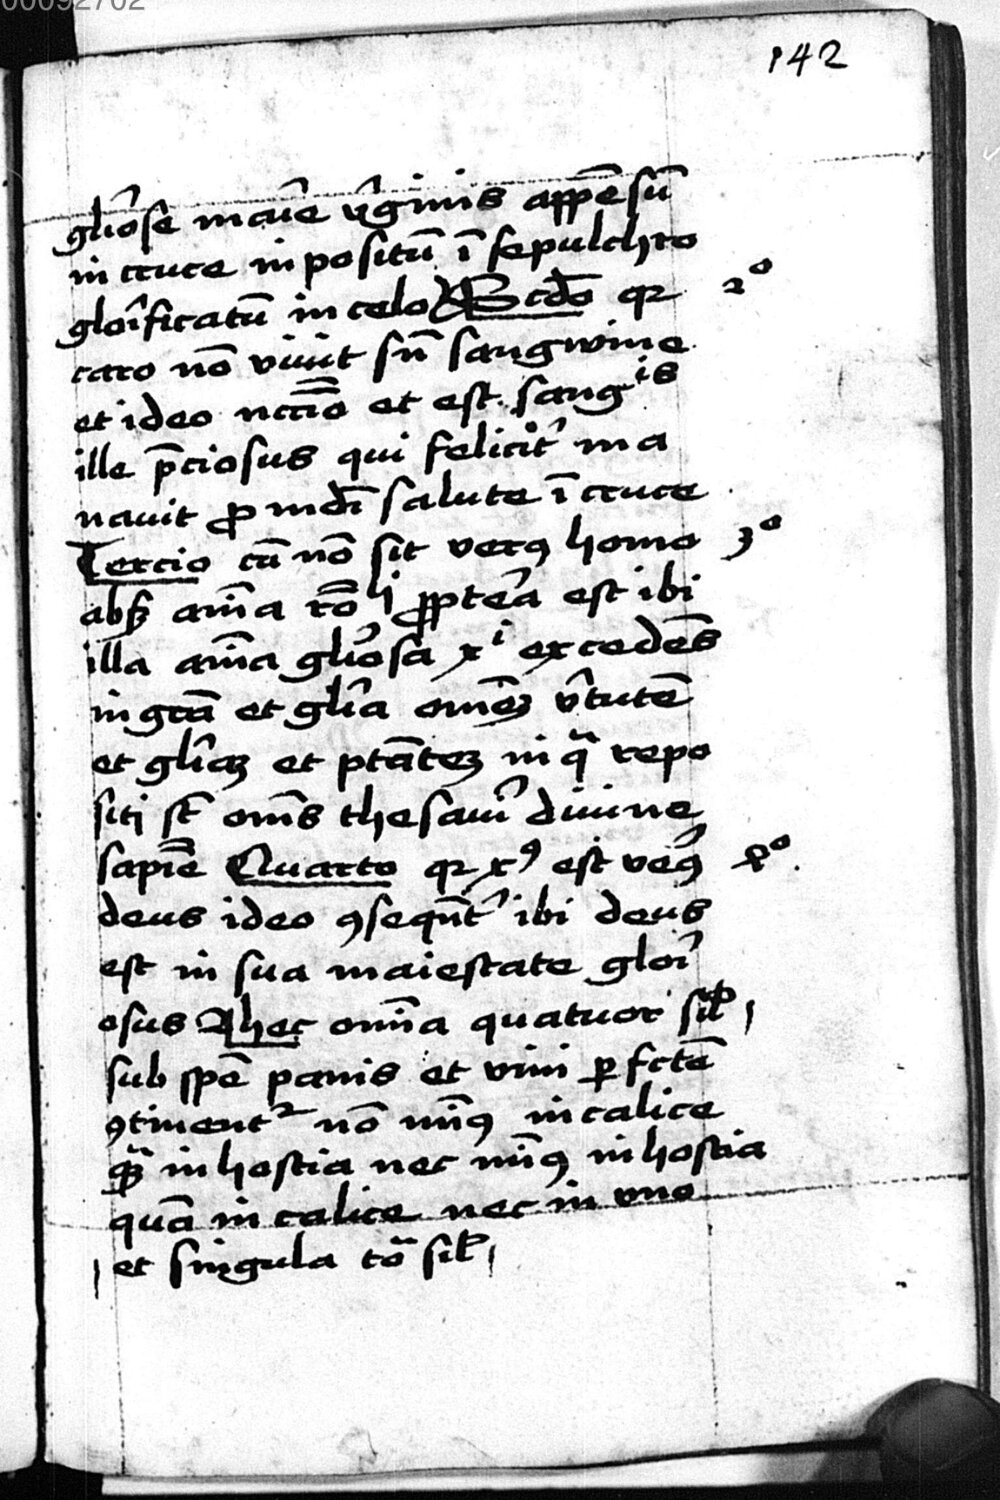 00092702
142
gl'iose mat'ie v'ginis appēsū
in cruce inpositū ī sepulchro
glorificatū in celo Scd̄o qꝛ 2º
caro nō viuit sn̄ sangwine
et ideo nccīo et est sangⁱˢ
ille p̄ciosus qui felicit' ma
nauit ꝓ mūdi salute ī cruce
Tercio cū nō sit verꝰ homo 3º
absqꝫ aīa rōˡⁱ ꝓpterea est ibi
illa aīa gl'iosa xⁱ excedēs
in gr̄a et gl'ia omēꝫ v'tutē
et gl'iaꝫ et ptātēꝫ in qᵃ repo
siti st̄ om̄s thesauri diuine
sapiē Quarto qꝛ xꝰ est verꝰ 4º
deus ideo ꝯseqn̄t' ibi deus
est in sua maiestate glori
osus Hec omīa quatuor sil'
sub spē panis et vini ꝑfctē
ꝯtinentꝛ nō minꝰ in calice
qᵃꝫ in hostia nec minꝰ in hostia
quā in calice nec in vno
et singula tō sil'